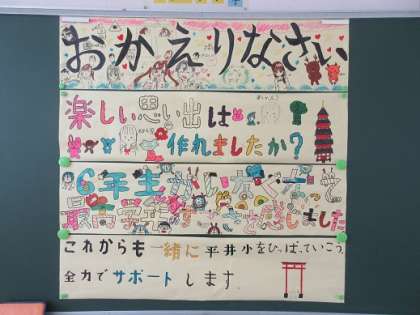 おかえりなさい
楽しい思い出は
作れましたか?
6年生がいなくなって
最高学年すごさを感じました
これからも一緒に平井小をひっぱっていこう。
全力でサポートします。